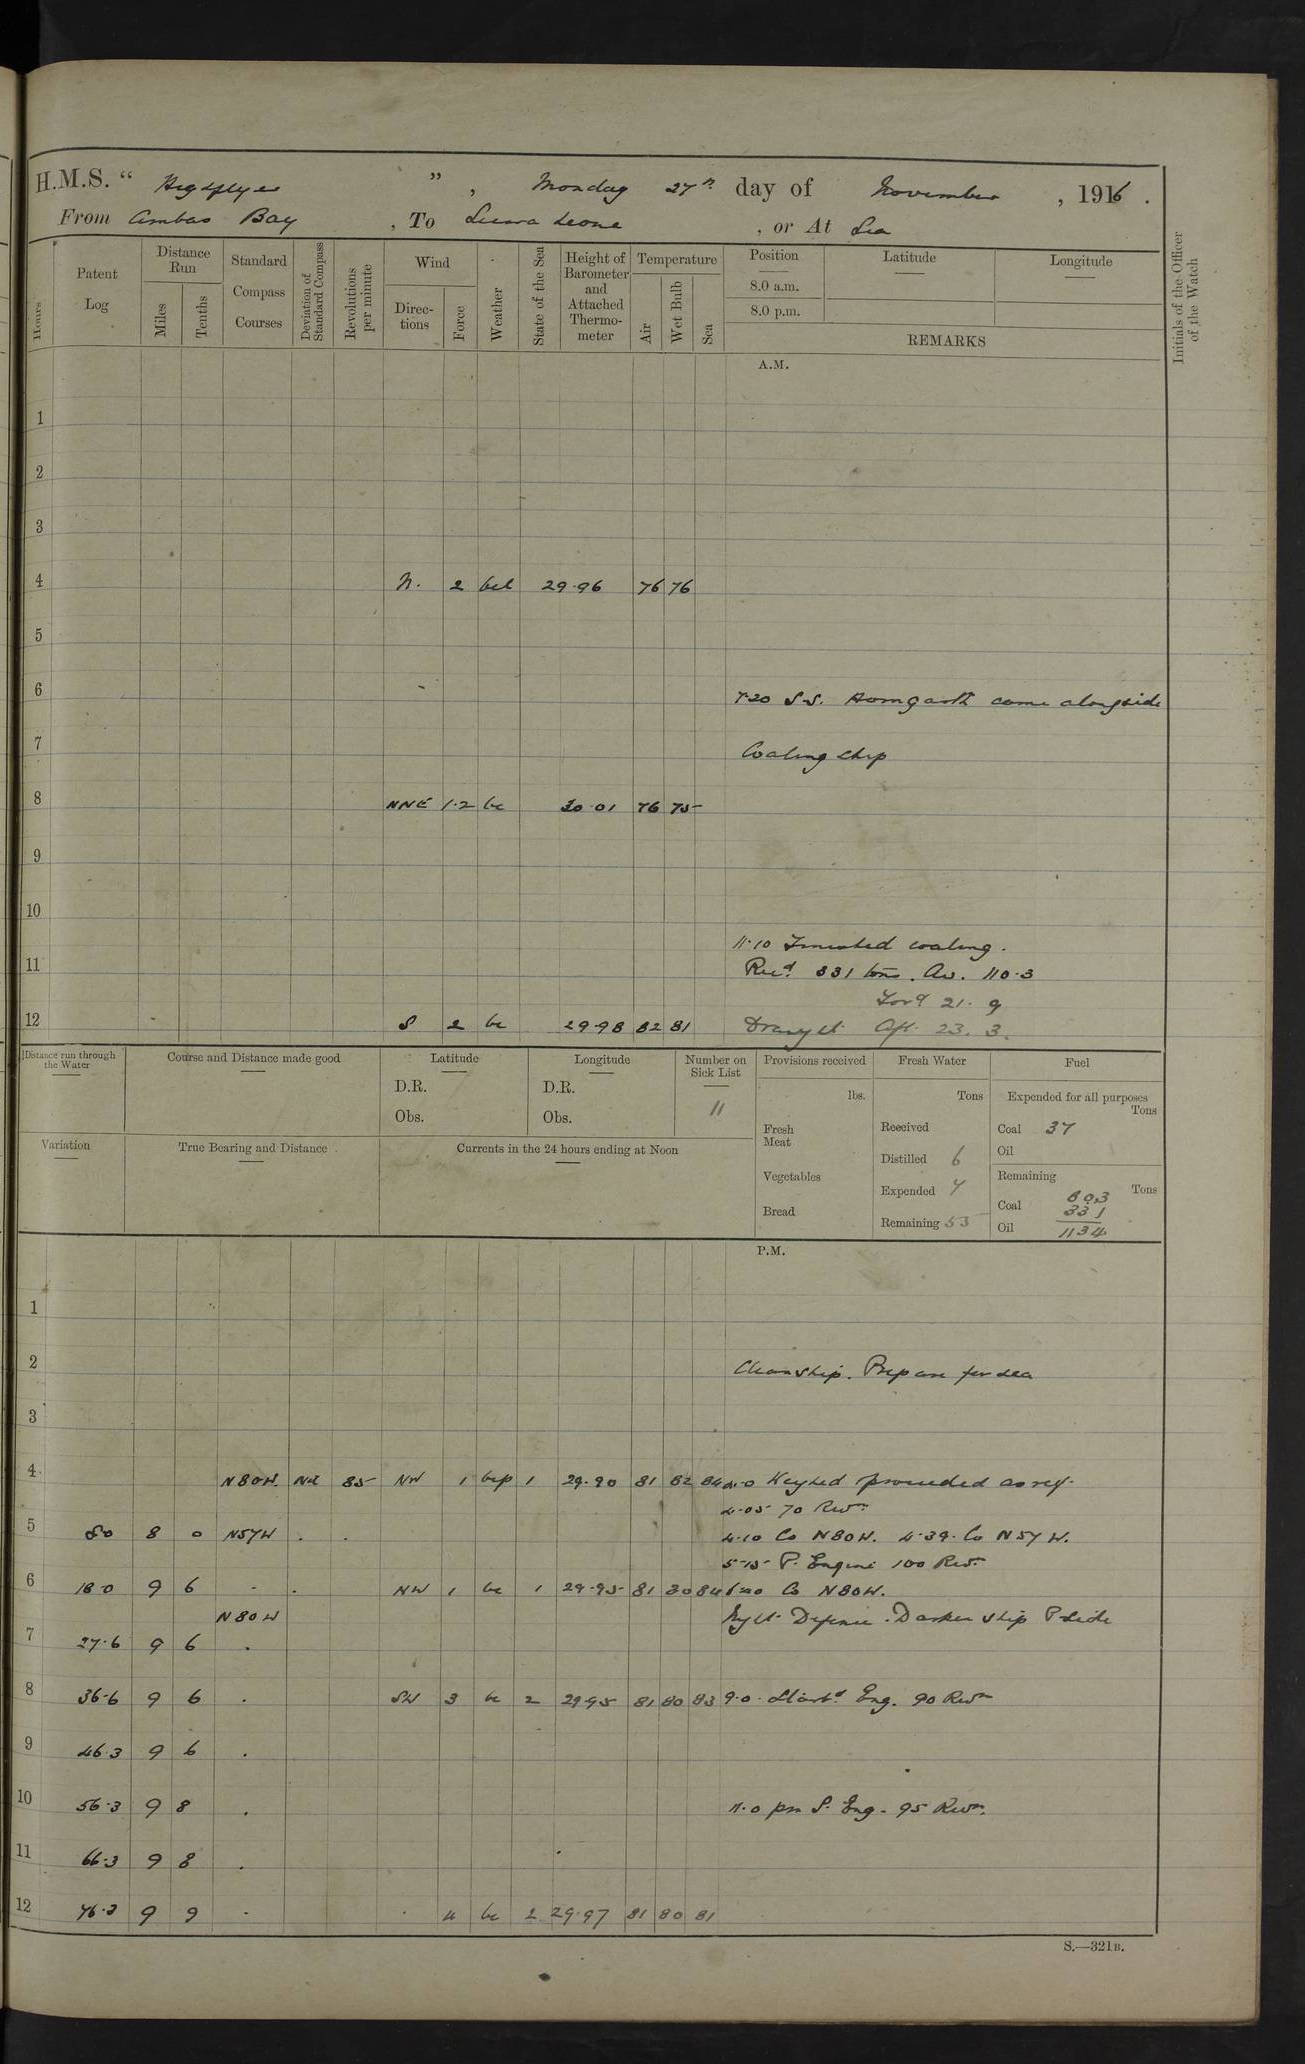 H.M.S. “ Highflyer ” , Monday 27th day of November , 1916 .
From Ambas Bay , To Sierra Leone , or At Sea
Hours
Patent Log
Distance Run
Miles
Tenths
Standard Compass Courses
Deviation of Standard Compass
Revolutions per minute
Wind
Directions
Force
Weather
State of the Sea
Height of Barometer and Attached Thermometer
Temperature
Air
Wet Bulb
Sea
Position
8.0 a.m.
8.0 p.m.
Latitude
Longitude
REMARKS
Initials of the Officer of the Watch
A.M.
1
2
3
4 N. 2 29.96 76 76
5
6
7.20 S.S. came alongside
7
Coaling ship
8 NNE 1.2 bc 30.01 76 75
9
10
11.10 Finished coaling.
11 Recd. 331 tons. Av. 110.3
Ford 21. 9
12 S 2 bc 29.98 82 81 Draught Aft. 23. 3.
Distance run through the Water
Course and Distance made good
Latitude
D.R.
Obs.
Longitude
D.R.
Obs.
Number on Sick List
11
Provisions received
lbs.
Fresh Meat
Vegetables
Bread
Fresh Water
Tons
Received
Distilled 6
Expended 7
Remaining 53
Fuel
Expended for all purposes
Tons
Coal 37
Oil
Remaining
Tons
Coal 803
331
Oil 1134
Variation
True Bearing and Distance
Currents in the 24 hours ending at Noon
P.M.
1
2 Clean ship. Prepare for sea
3
4 N80W. Nil 85 NW 1 bcp 1 29.90 81 82 84 4.0 Weighed proceeded as req.
4.05 70 Revns
5 8.0 8 0 N57W . . 4.10 Co N80W. 4.39. Co N57W.
5.15 P. Engine 100 Revs.
6 18.0 9 6 - . NW 1 bc 1 29.95 81 80 84 6.20 Co N80W.
N80W Night Defence. Darken ship P side
7 27.6 9 6 .
8 36.6 9 6 . SW 3 bc 2 29.95 81 80 83 9.0. Starbd Eng. 90 Revns
9 46.3 9 6 .
10 56.3 9 8 . 11.0 pm S. Eng. 95 Revns.
11 66.3 9 8 .
12 76.3 9 9 . . 4 bc 2 29.97 81 80 81
S.—321B.